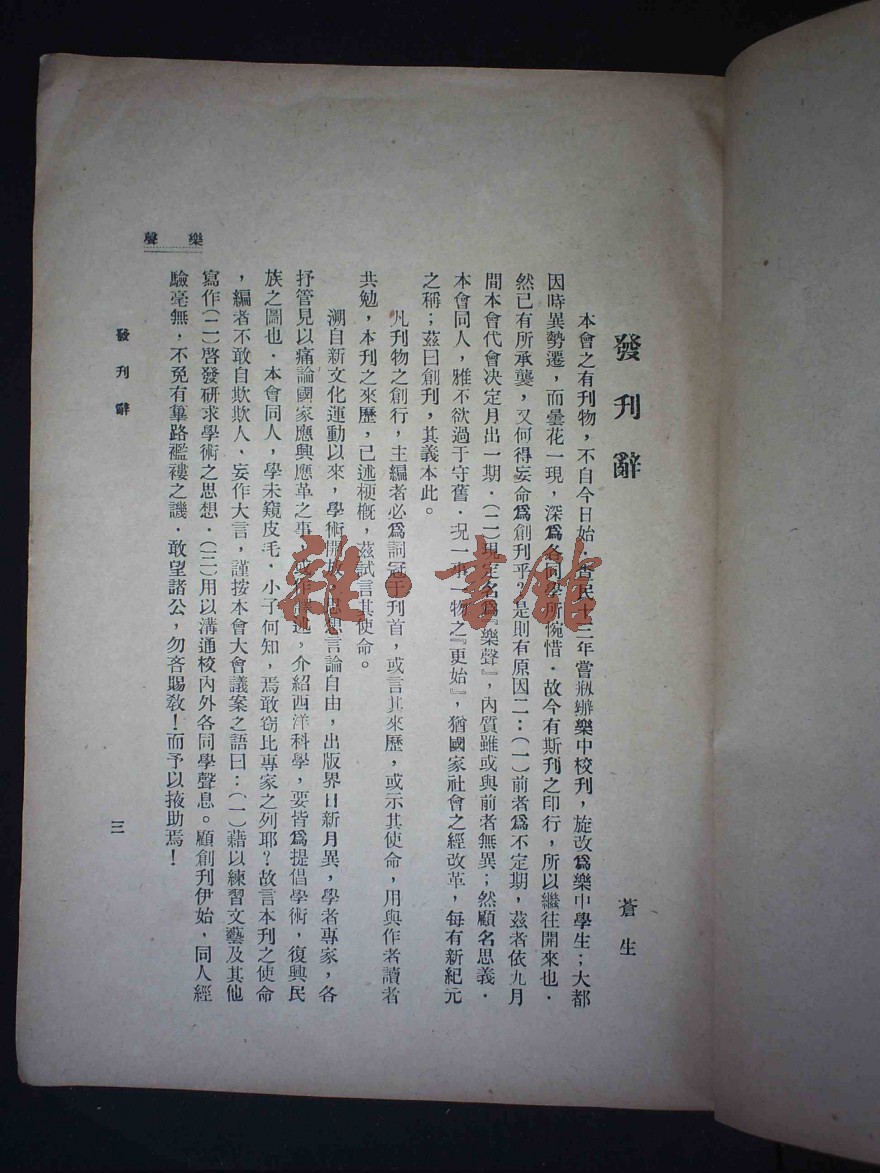 發刊辭
蒼生
本會之有刊物，不自今日始，查民十三年嘗刱辦樂中校刊，旋改爲樂中學生；大都
因時異勢遷，而曇花一現，深爲各同學所惋惜．故今有斯刊之印行，所以繼往開來也．
然已有所承襲，又何得妄命爲創刊乎？是則有原因二：（一）前者爲不定期，茲者依九月
間本會代會决定月出一期．（二）現定名爲『樂聲』，內質雖或與前者無異；然顧名思義．
本會同人，雅不欲過于守舊．况一事一物之『更始』，猶國家社會之經改革，每有新紀元
之稱；茲曰創刊，其義本此。
凡刊物之創行，主編者必爲詞冠于刊首，或言其來歷，或示其使命，用與作者讀者
共勉，本刊之來歷，已述梗槪，茲試言其使命。
溯自新文化運動以來，學術開放，思想言論自由，出版界日新月異，學者專家，各
抒管見以痛論國家應興應革之事，或作譯述，介紹西洋科學，要皆爲提倡學術，復興民
族之圖也．本會同人，學未窺皮毛．小子何知，焉敢窃比專家之列耶？故言本刊之使命
，編者不敢自欺欺人、妄作大言，謹按本會大會議案之語曰：（一）藉以練習文藝及其他
寫作（二）啓發研求學術之思想．（三）用以溝通校內外各同學聲息。顧創刊伊始，同人經
驗毫無，不免有篳路襤褸之譏．敢望諸公，勿吝賜敎！而予以掖助焉！
樂聲
發刊辭
三
雜·書館